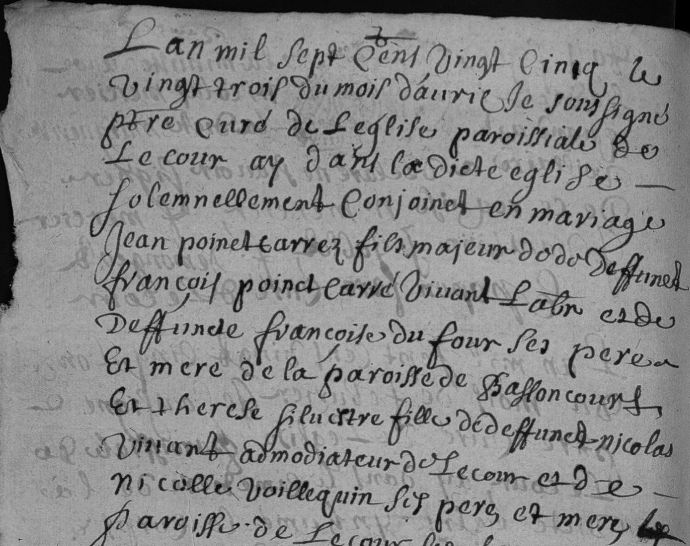 Lan mil sept cens vingt cinq le
vingt trois du mois dauril Je soussigné
ptre curé de Leglise paroissiale de
Lecour ay dans la dicte eglise
solemnellement conjoinct en mariage
Jean poinct carrez fils majeur de deffunct
françois poinct carré vivant Labr et de
Deffuncte françoise du four ses pere
Et mere de la paroisse de
Et therese siluestre fille de deffunct nicolas
vivant admodiateur de Lecour et de
nicolle voillequin ses pere et mere
paroisse de Lecour